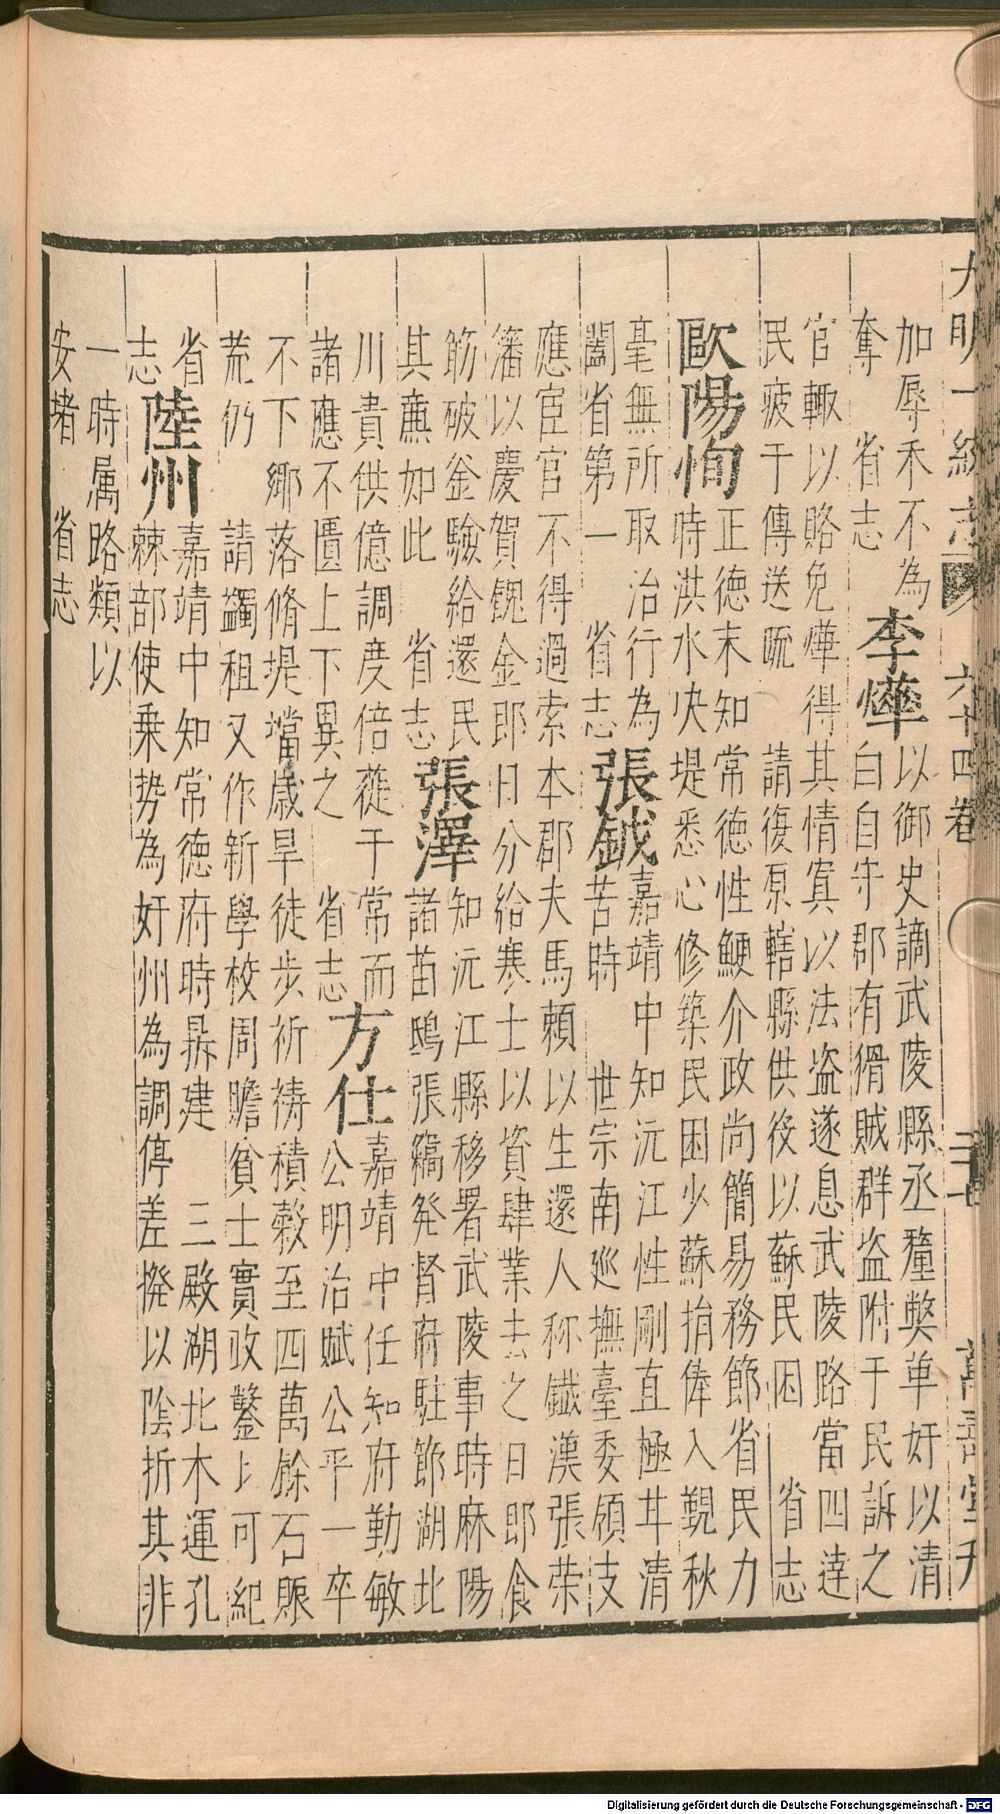 大明一統志 六十四卷 三十七 萬壽堂刊
加辱禾不為
奪 省志
李燁
以御史謫武陵縣丞釐獘革奸以清
白自守郡有猾賊群盗附于民訴之
官輙以賂免燁得其情寘以法盗遂息武陵路當四逹
民疲于傳送 請復原轄縣供役以蘇民困 省志
歐陽恂
正德末知常德性鯁介政尚簡易務節省民力
時洪水决堤悉心修築民困少蘇捐俸入覲秋
毫無所取治行為
闔省第一 省志
張鉞
嘉靖中知沅江性剛直極其清
苦時 世宗南廵撫臺委領支
應宦官不得過索本郡夫馬頼以生還人称鐵漢張荣
籓以慶賀餽金郎日分給寒士以資肆業去之日即食
觔破釜驗給還民
其亷如此 省志
張澤
知沅江縣移署武陵事時麻陽
諸苗鴟張竊発督府駐節湖北
川貴供億調度倍蓰于常而
諸應不匱上下異之 省志
方仕
嘉靖中任知府勤敏
公明治賦公平一卒
不下鄉落脩堤壋歳旱徒步祈禱積穀至四萬餘石賑
荒仍 請蠲租又作新學校周贍貧士實政鑿鑿可紀
省
志
陸州
嘉靖中知常德府時鼎建 三殿湖北木運孔
棘部使乗势為奸州為調停差撥以陰折其非
一時属路類以
安堵 省志
Digitalisierung gefördert durch die Deutsche Forschungsgemeinschaft - DFG